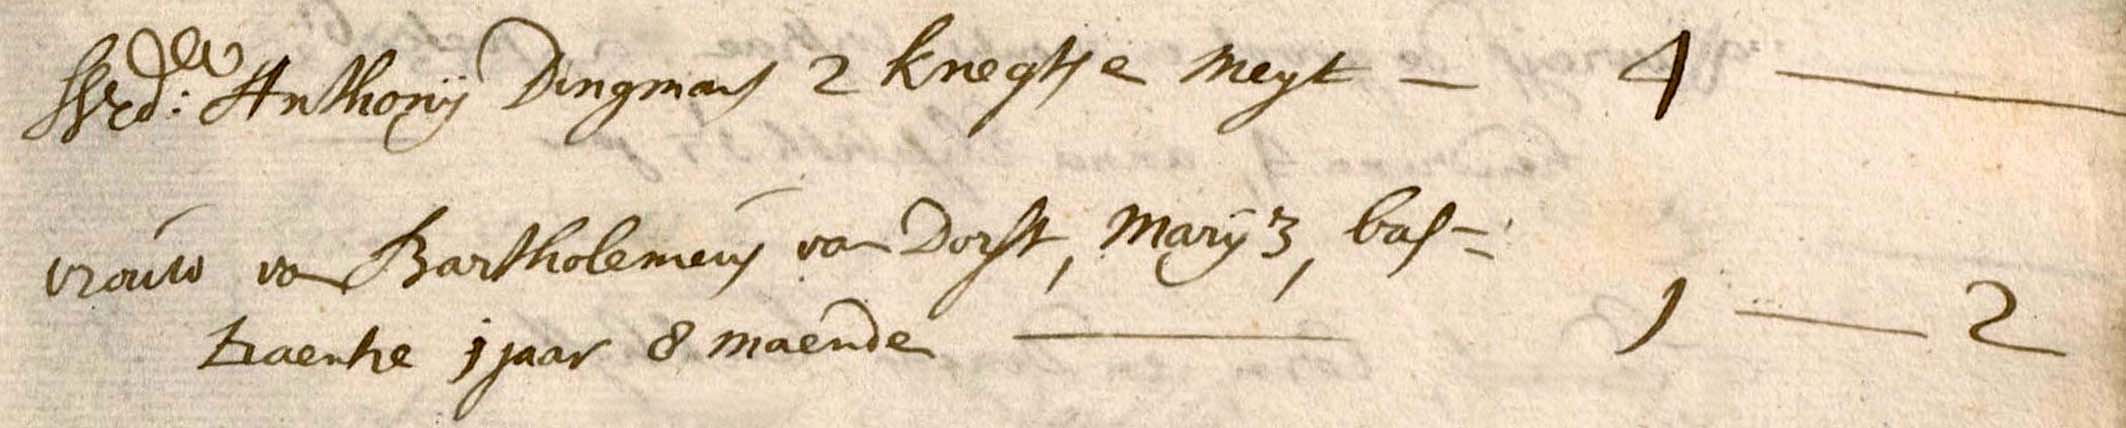 Wed: dw Anthonij Dingmans 2 kneghs e meyt — 4 —
vrouw van Bartholemeus van Dorst, Marij 3, bas=
traenke 1 jaar 8 maende — 1 — 2